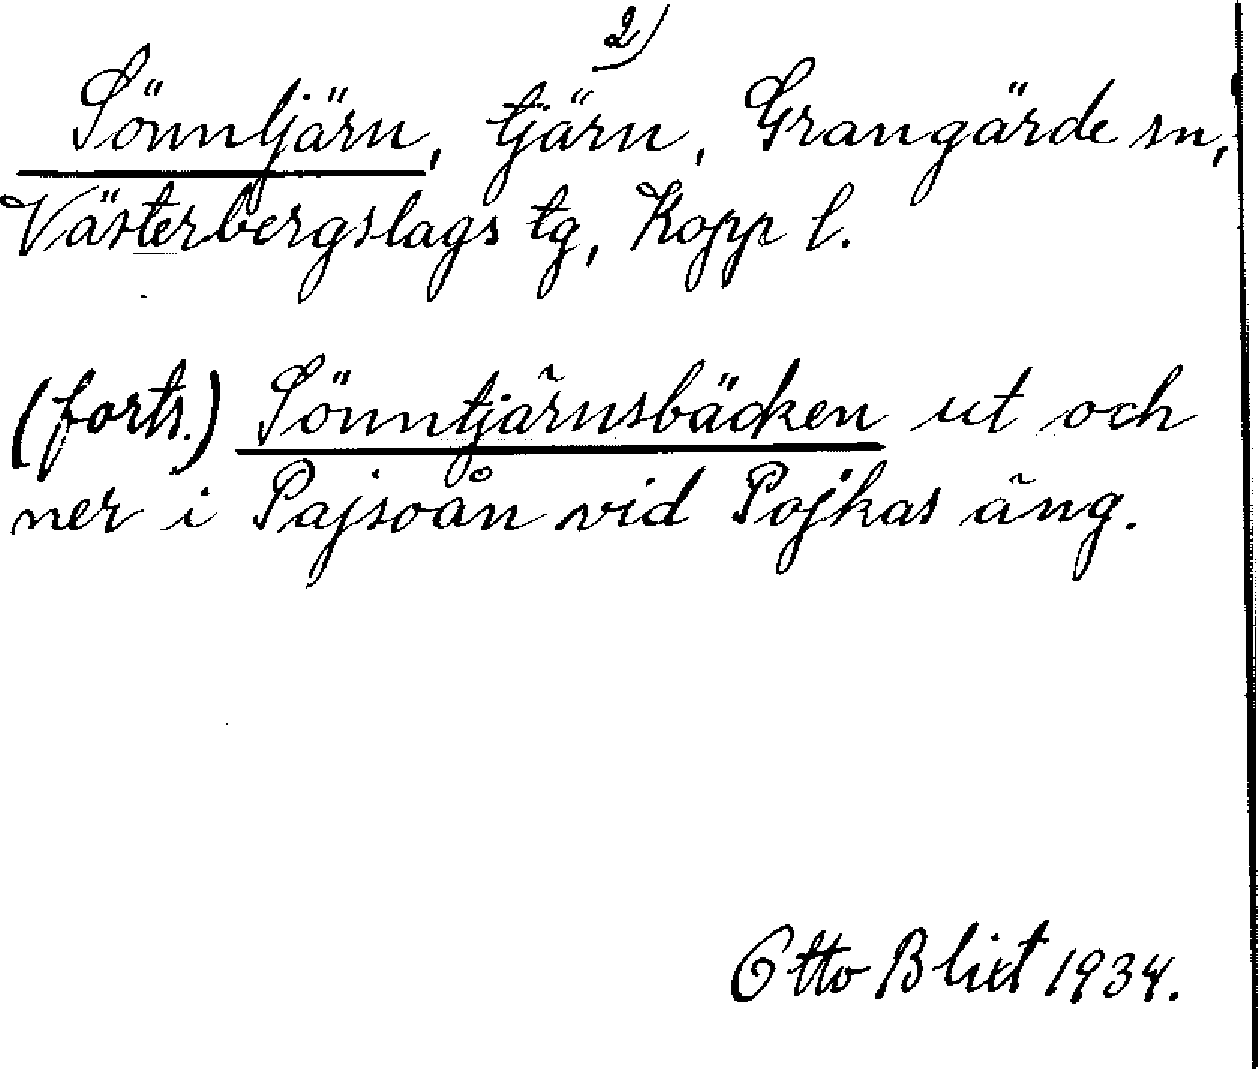 2)
Sönntjärn, tjärn, Grangärde sn,
Västerbergslags tg, Kopp l.
(forts.) Sönntjärnsbäcken ut och
ner i Pajsoån vid Pojkas äng.
Otto Blixt 1934.